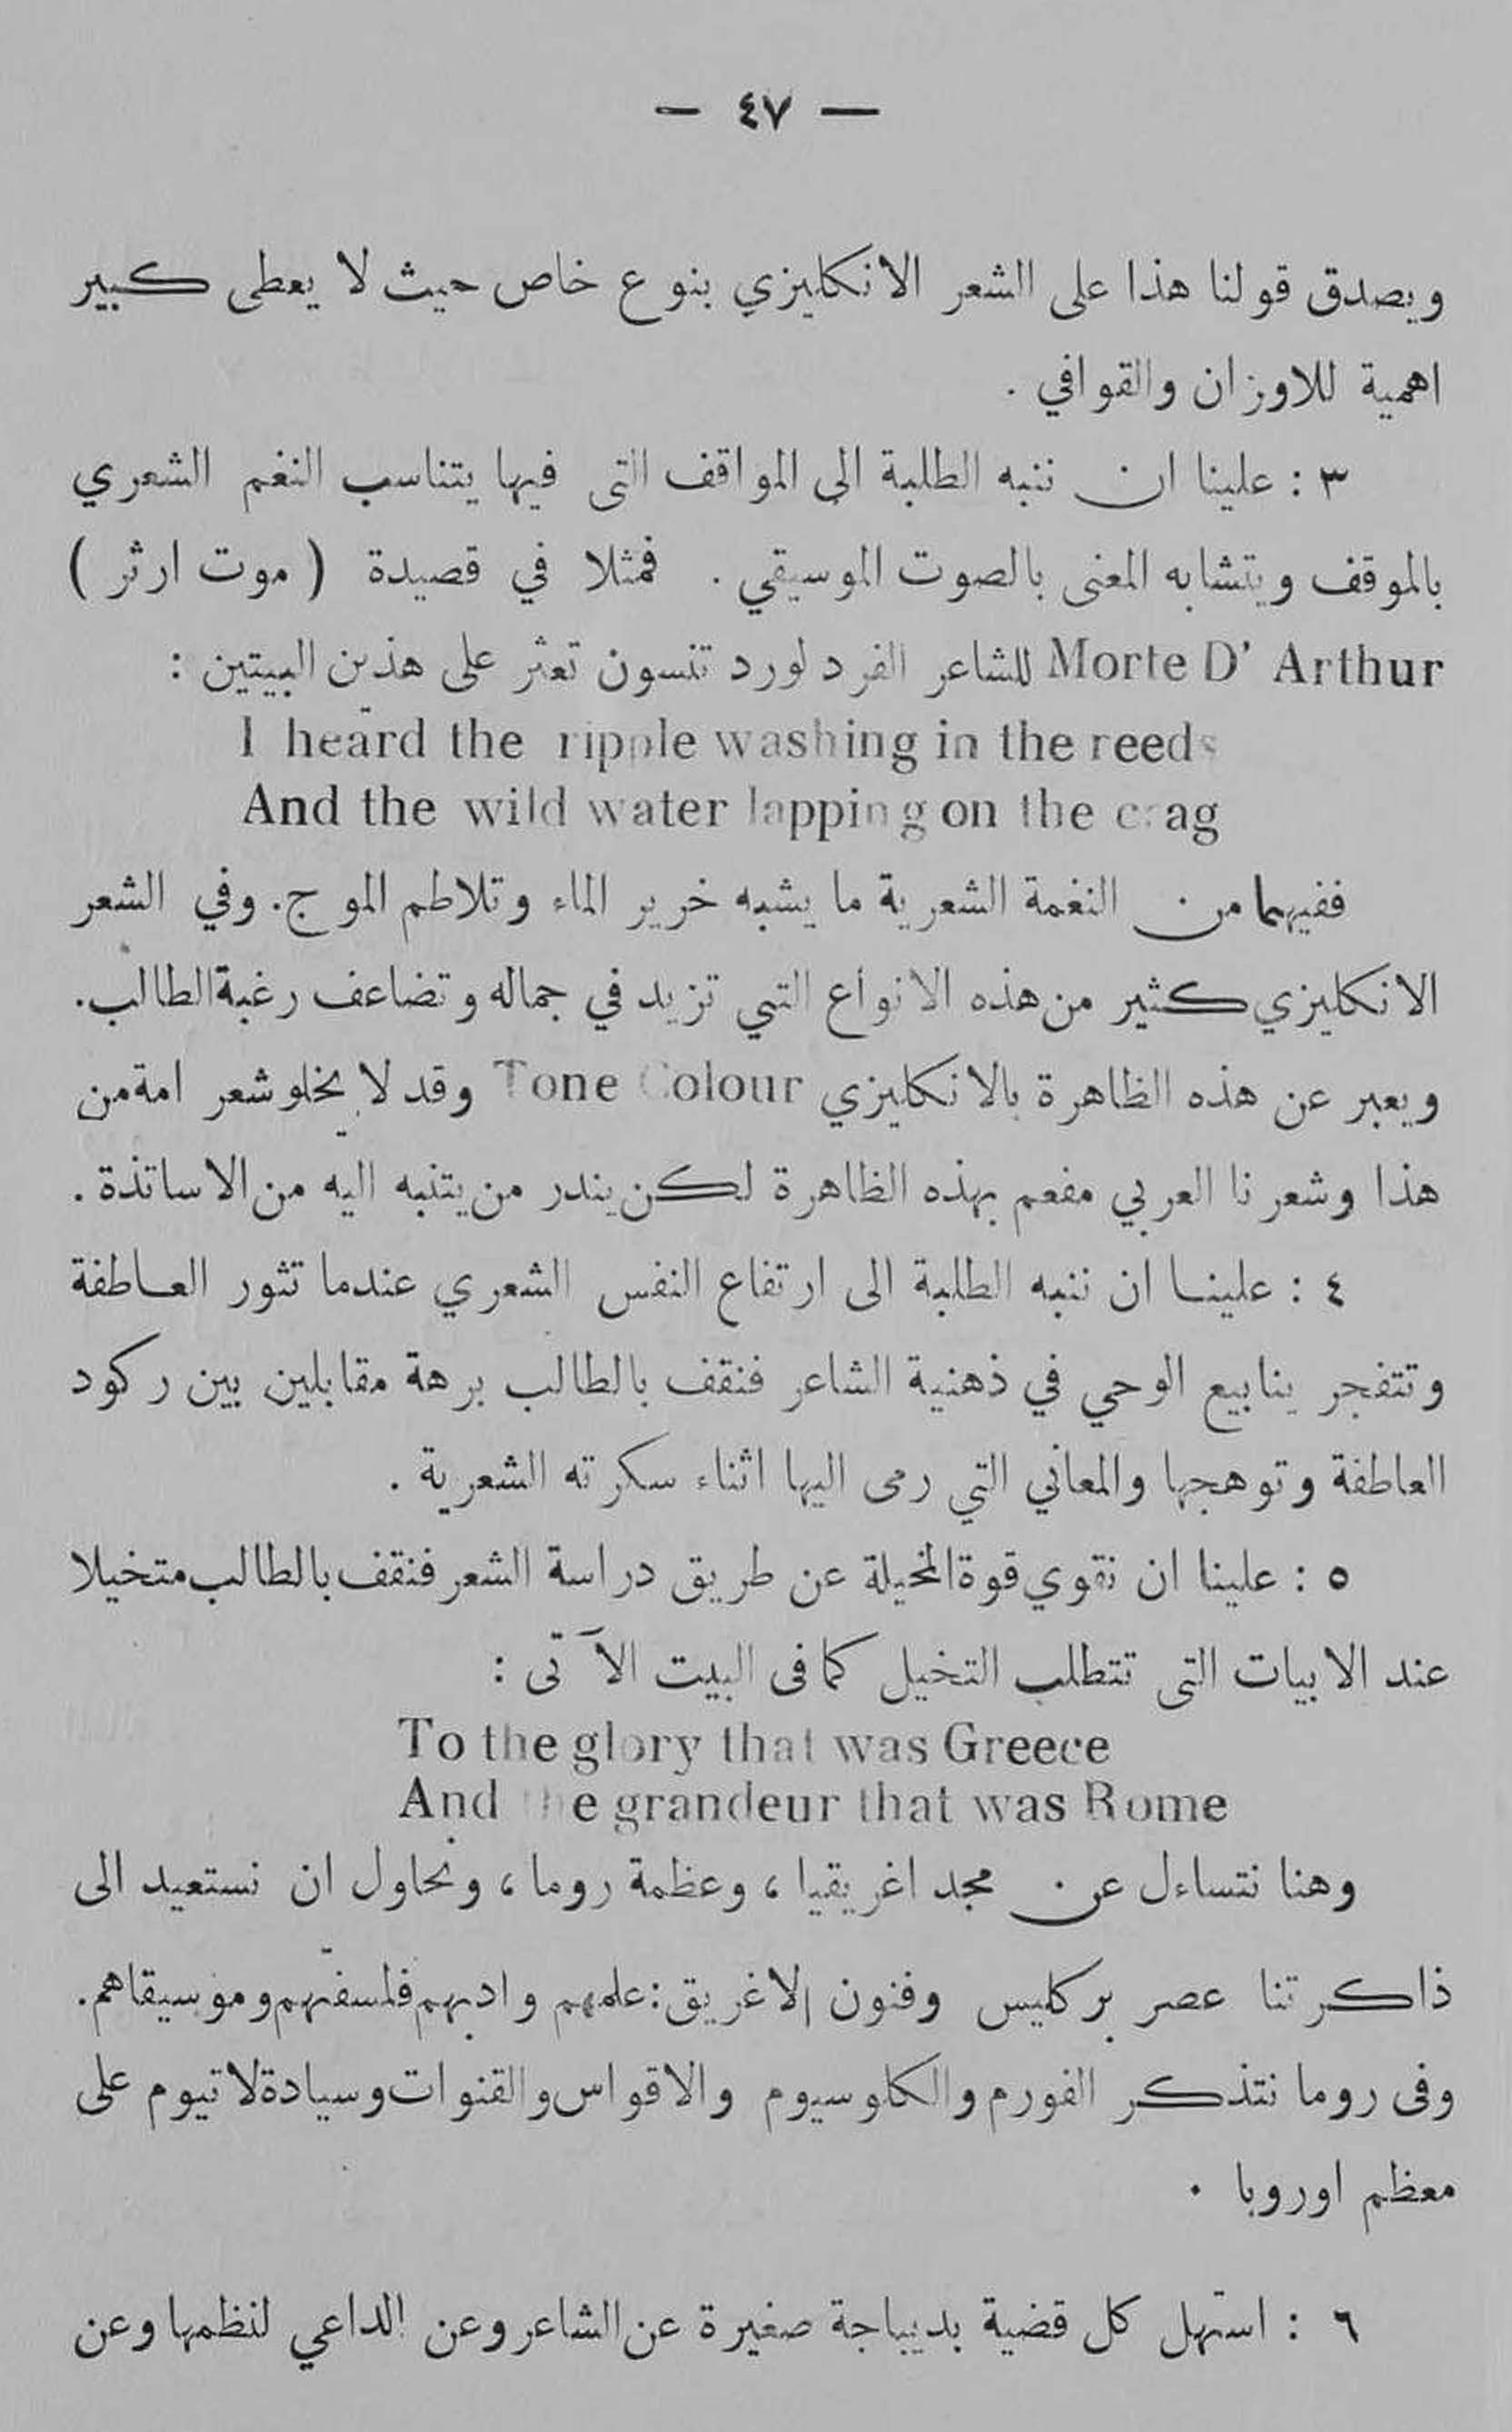 — ٤٧ —
ويصدق قولنا هذا على الشعر الانكليزي بنوع خاص حيث لا يعطى كبير
اهمية للاوزان والقوافي .
٣ : علينا ان ننبه الطلبة الى المواقف التى فيها يتناسب النغم الشعري
بالموقف ويتشابه المعنى بالصوت الموسيقي . فمثلا في قصيدة ( موت ارثر )
Morte D' Arthur للشاعر الفرد لورد تنسون تعثر على هذين البيتين :
I heard the ripple washing in the reeds
And the wild water lapping on the crag
ففيهما من النغمة الشعرية ما يشبه خرير الماء وتلاطم الموج. وفي الشعر
الانكليزي كثير من هذه الانواع التي تزيد في جماله وتضاعف رغبة الطالب.
ويعبر عن هذه الظاهرة بالانكليزي Tone Colour وقد لا يخلو شعر امة من
هذا وشعرنا العربي مفعم بهذه الظاهرة لكن يندر من يتنبه اليه من الاساتذة .
٤ : علينا ان ننبه الطلبة الى ارتفاع النفس الشعري عندما تثور العاطفة
وتتفجر ينابيع الوحي في ذهنية الشاعر فنقف بالطالب برهة مقابلين بين ركود
العاطفة وتوهجها والمعاني التي رمى اليها اثناء سكرته الشعرية .
٥ : علينا ان نقوي قوة المخيلة عن طريق دراسة الشعر فنقف بالطالب متخيلا
عند الابيات التى تتطلب التخيل كما فى البيت الآتى :
To the glory that was Greece
And the grandeur that was Rome
وهنا نتساءل عن مجد اغريقيا ، وعظمة روما ، ونحاول ان نستعيد الى
ذاكرتنا عصر بركليس وفنون الاغريق : علمهم وادبهم فلسفتهم وموسيقاهم.
وفى روما نتذكر الفورم والكلوسيوم والاقواس والقنوات وسيادة لاتيوم على
معظم اوروبا .
٦ : استهل كل قضية بديباجة صغيرة عن الشاعر وعن الداعي لنظمها وعن